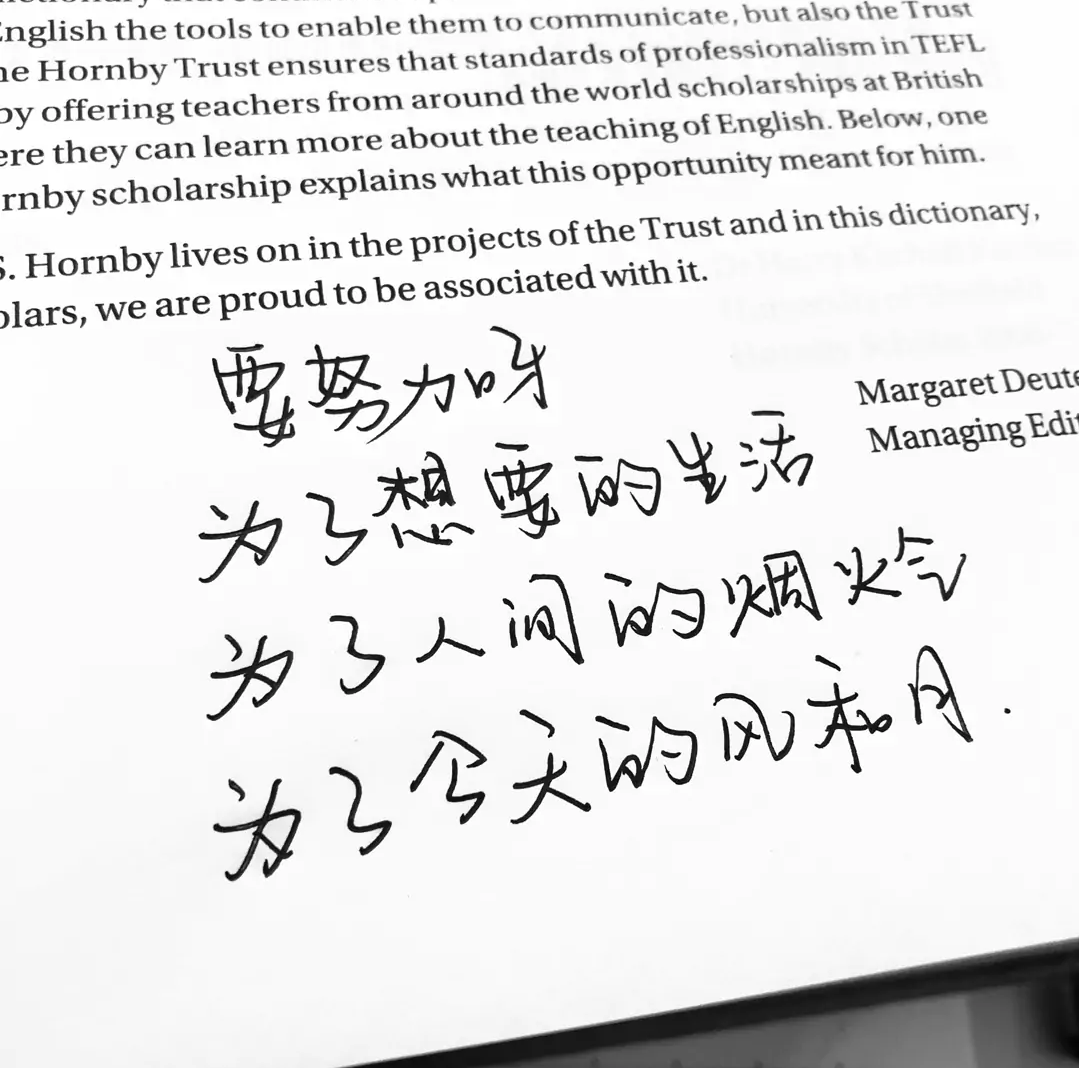 English the tools to enable them to communicate, but also the Trust
he Hornby Trust ensures that standards of professionalism in TEFL
by offering teachers from around the world scholarships at British
ere they can learn more about the teaching of English. Below, one
rnby scholarship explains what this opportunity meant for him.
S. Hornby lives on in the projects of the Trust and in this dictionary,
olars, we are proud to be associated with it.
Margaret Deute
Managing Edit
要努力呀
为了想要的生活
为了人间的烟火气
为了今天的风和月.